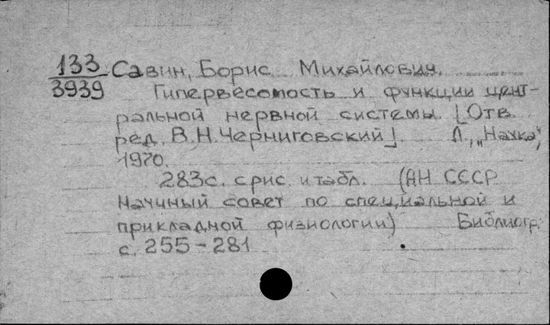 133 Савин, Борис Михайлович.
3939 Гипервесомость и функции цент-
ральной нервной системы. [Отв.
ред. В.Н. Черниговский]. Л., „Наука",
1970.
283 с. с рис. и табл. (АН СССР
Научный совет по специальной и
прикладной физиологии) Библиогр.:
с. 255-281.